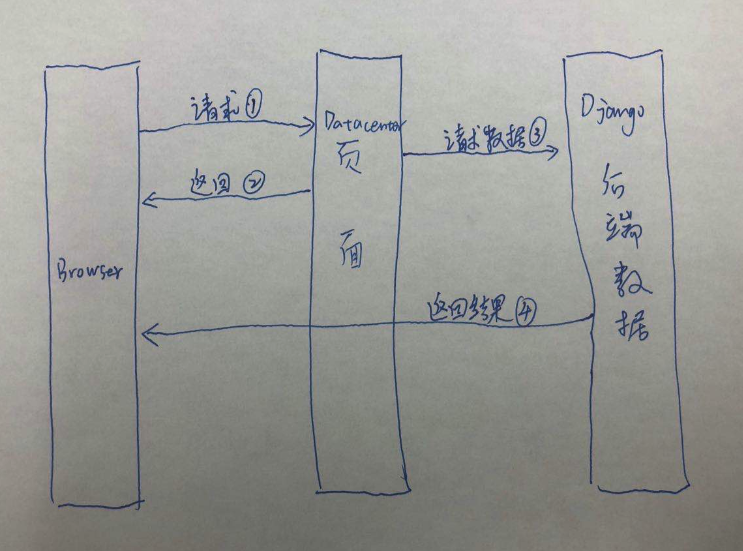 Browser
请求①
返回②
Datacenter
页
面
请求数据③
返回结果④
Django
后
端
数
据